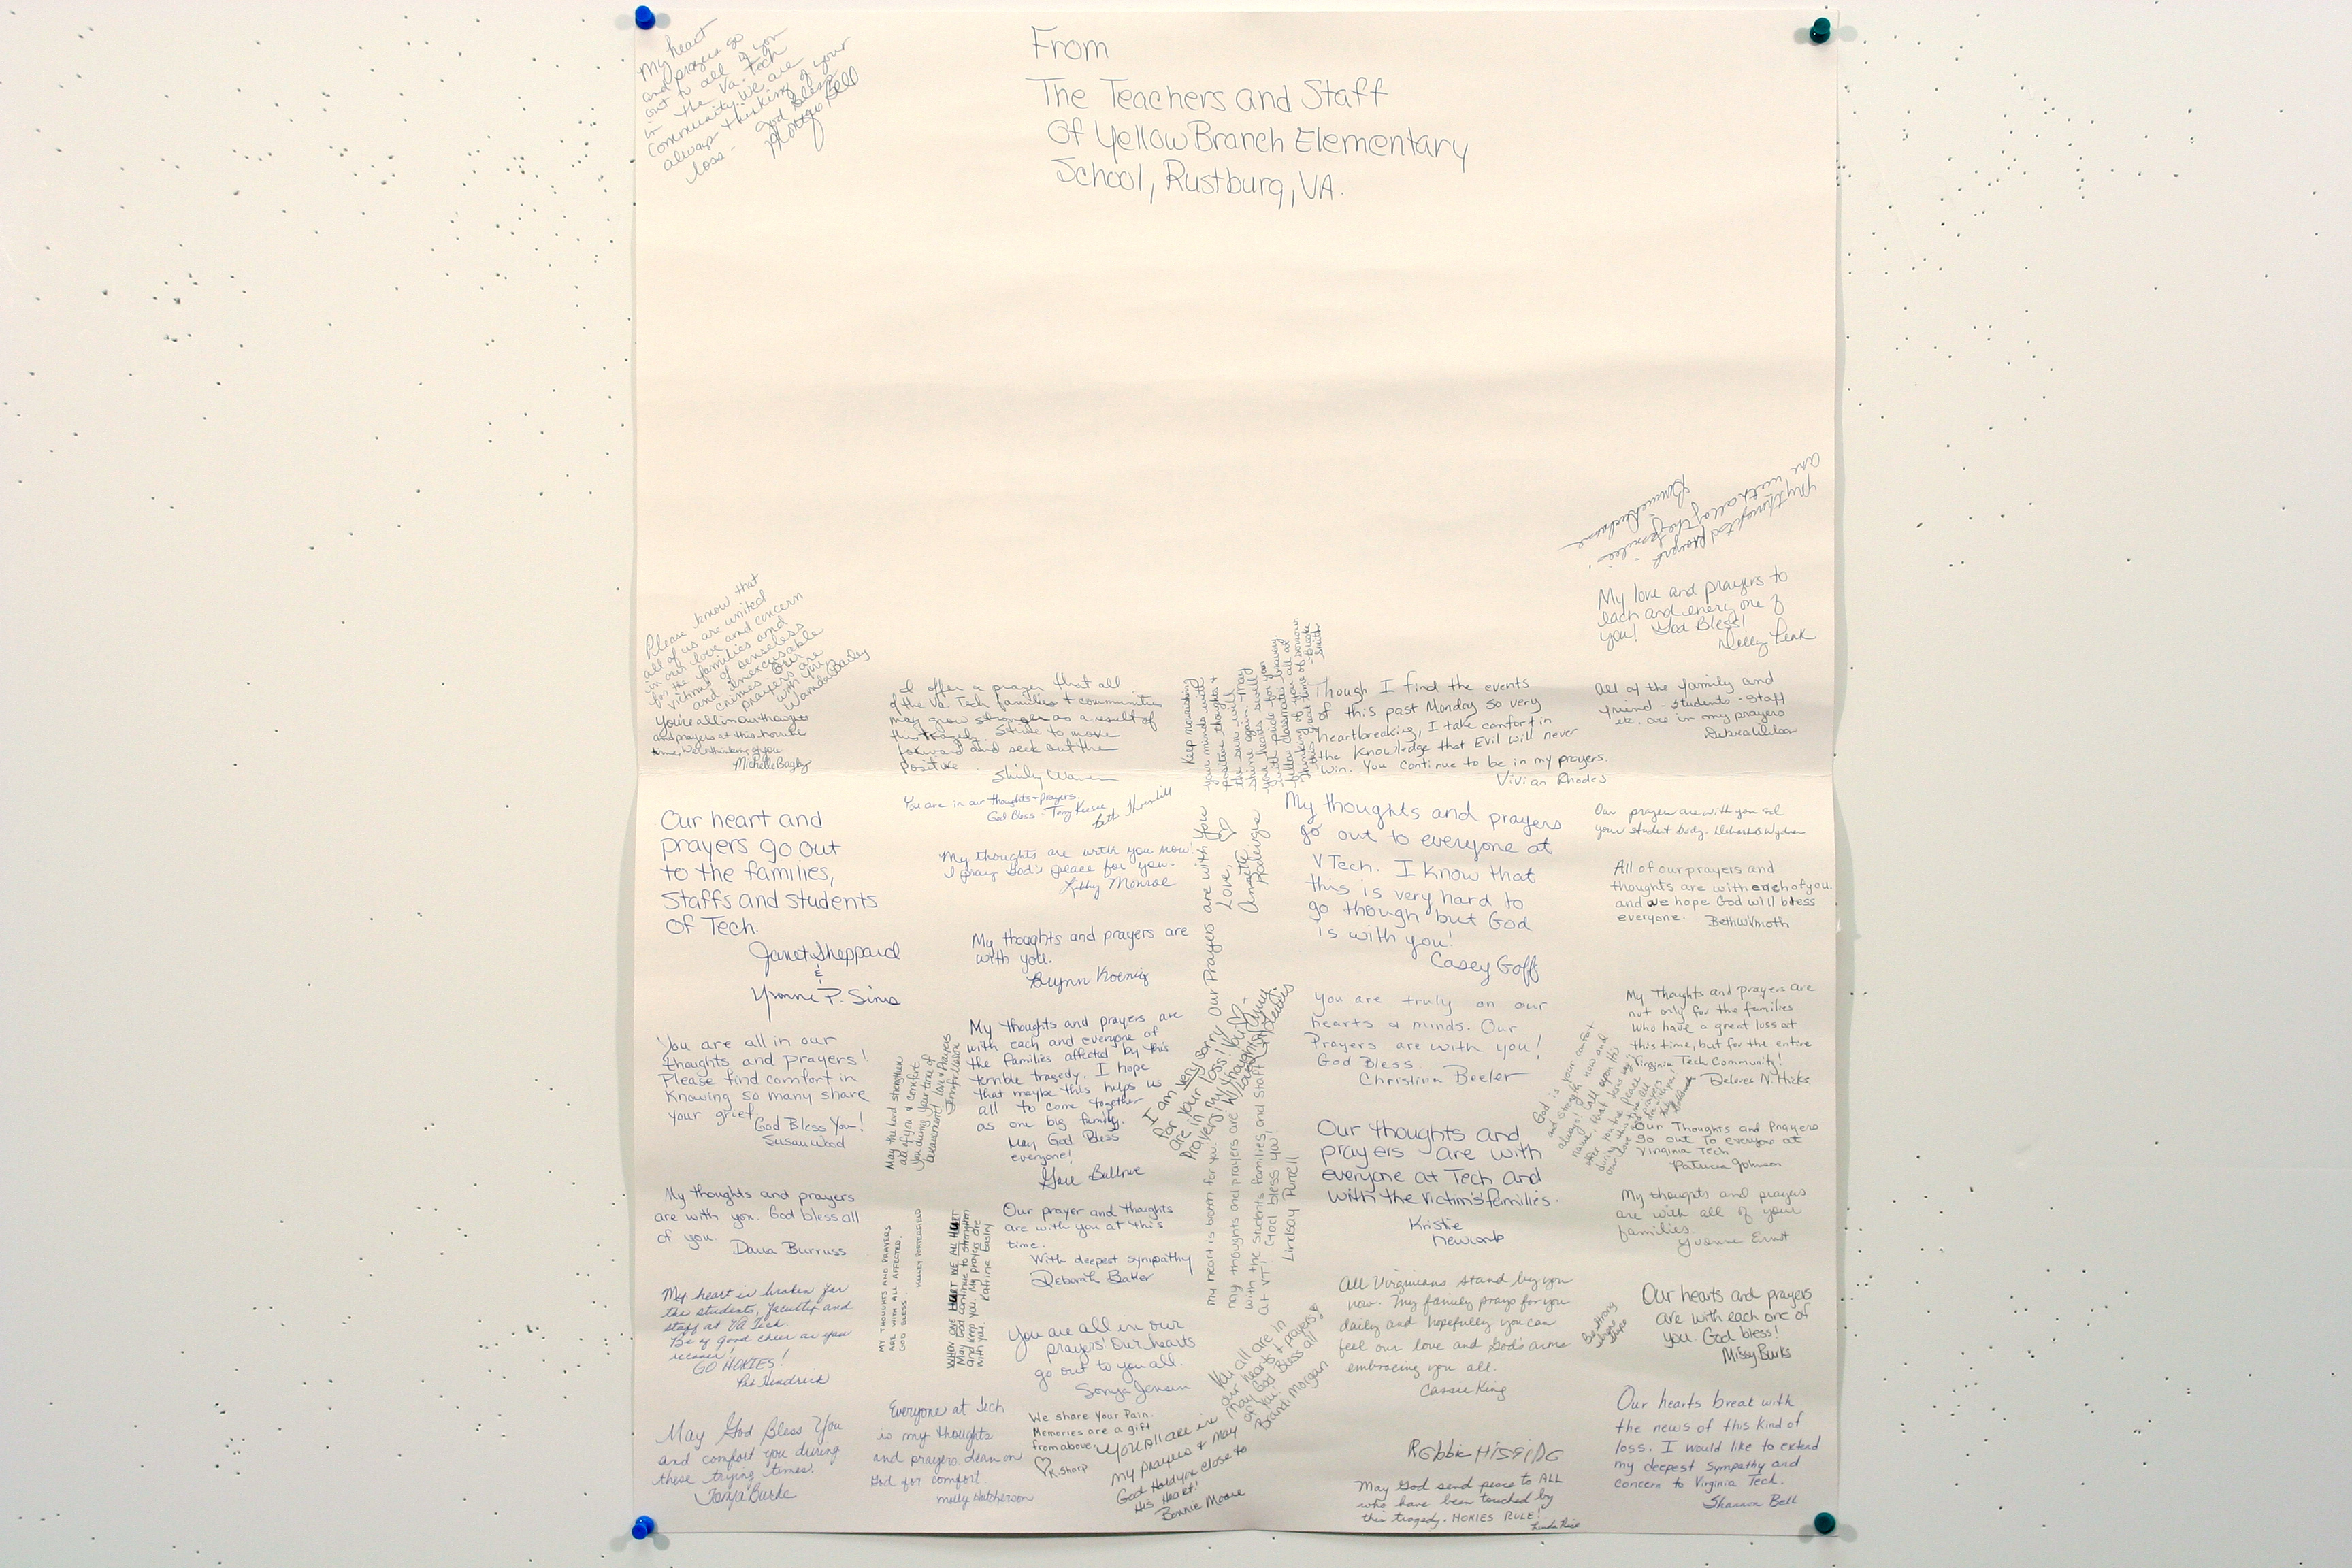 From
The Teachers and Staff
Of Yellow Branch Elementary
School, Rustburg, VA.
My heart
and prayers go
out to all of you
in the Va. Tech
community. We are
always thinking of your
loss - God Bless
Bell
My thoughts & prayers
are with all of the families
My love and prayers to
each and every one of
you! God Bless!
Peak
Please know that
all of us are united
in our love and concern
for the families and
victims of senseless
and inexcusable
crimes. Our
prayers are
with you.
Wanda Bagley
You're all in our thoughts
and prayers at this horrible
time. We're thinking of you
Michelle Bagby
I offer a prayer that all
of the Va. Tech families & communities
may grow stronger as a result of
this tragedy. Strive to move
forward and seek out the
positive.
Shirly
Keep
your minds with
positive thoughts &
the sun will
shine again. May
your hearts swell
with pride for your
fellow classmates bravery.
Thinking of you all at
this great time of sorrow.
Smith
Though I find the events
of this past Monday so very
heartbreaking, I take comfort in
the knowledge that Evil will never
win. You continue to be in my prayers.
Vivian Rhodes
All of the family and
friend - students - staff
etc. are in my prayers
You are in our thoughts & prayers.
God Bless - Terry
Beth Thornhill
Our heart and
prayers go out
to the families,
Staffs and students
of Tech.
Janet Sheppard
&
Yvonne P. Sims
My thoughts are with you now!
I pray God's peace for you.
Libby Monroe
Our Prayers are with you
Love,
Annette
My thoughts and prayers
go out to everyone at
V Tech. I know that
this is very hard to
go though but God
is with you!
Casey Goff
Our prayers are with you and
your student body.
All of our prayers and
thoughts are with each of you.
and we hope God will bless
everyone. Beth Wilmoth
My thoughts and prayers are
with you.
Brynn Koenig
You are all in our
thoughts and prayers!
Please find comfort in
knowing so many share
your grief.
God Bless You!
Susan Wood
May the Lord strengthen
all of you & comfort
you during your time of
bereavement. Love & Prayers
Jennifer
My thoughts and prayers are
with each and everyone of
the families affected by this
terrible tragedy. I hope
that maybe this helps us
all to come together
as one big family.
May God Bless
everyone!
I am very sorry
for your loss! You
are in my thoughts &
Prayers!
You are truly on our
hearts & minds. Our
Prayers are with you!
God Bless
Christina Beeler
My Thoughts and prayers are
not only for the families
who have a great loss at
this time, but for the entire
Virginia Tech Community!
Delores N. Hicks
God is your comfort
and strength now and
always! Call upon His
Our Thoughts and Prayers
go out to everyone at
Virginia Tech
Patricia Johnson
My thoughts and prayers
are with you. God bless all
of you.
Dana Burruss
MY THOUGHTS AND PRAYERS
ARE WITH ALL AFFECTED.
GOD BLESS
KELLEY PORTERFIELD
WHEN ONE HURT WE ALL HURT
May God continue to strengthen
and keep you. My prayers are
with you.
Katrina Easley
Our prayer and thoughts
are with you at this
time.
With deepest sympathy
Deborah Baker
my heart is broken for you.
my thoughts and prayers are
with the students, families, and staff
at VT! God bless you!
Lindsay Purcell
Our thoughts and
prayers are with
everyone at Tech and
with the victims' families.
Kristie
Newcomb
My thoughts and prayers
are with all of your
families.
Yvonne Ernst
My heart is broken for
the students, faculty and
staff at VA Tech.
Be of good cheer as you
recover!
GO HOKIES!
Pat Hendrick
You are all in our
prayers! Our hearts
go out to you all.
Sonya Jensen
You all are in
our hearts & prayers!
May God Bless all
of you!
Brandi Morgan
All Virginians stand by you
now. My family prays for you
daily and hopefully you can
feel our love and God's arms
embracing you all.
Cassie King
Be strong
Our hearts and prayers
are with each one of
you. God bless!
Missy Burks
May God Bless You
and comfort you during
these trying times.
Tonya Burke
Everyone at Tech
is my thoughts
and prayers. Lean on
God for comfort
Molly Hutcherson
We share Your Pain.
Memories are a gift
from above.
K. Sharp
You All are in
my prayers & May
God Hold you close to
His Heart!
Bonnie Moore
Robbie
May God send peace to ALL
who have been touched by
this tragedy. HOKIES RULE!
Linda Rice
Our hearts break with
the news of this kind of
loss. I would like to extend
my deepest sympathy and
concern to Virginia Tech.
Shannon Bell